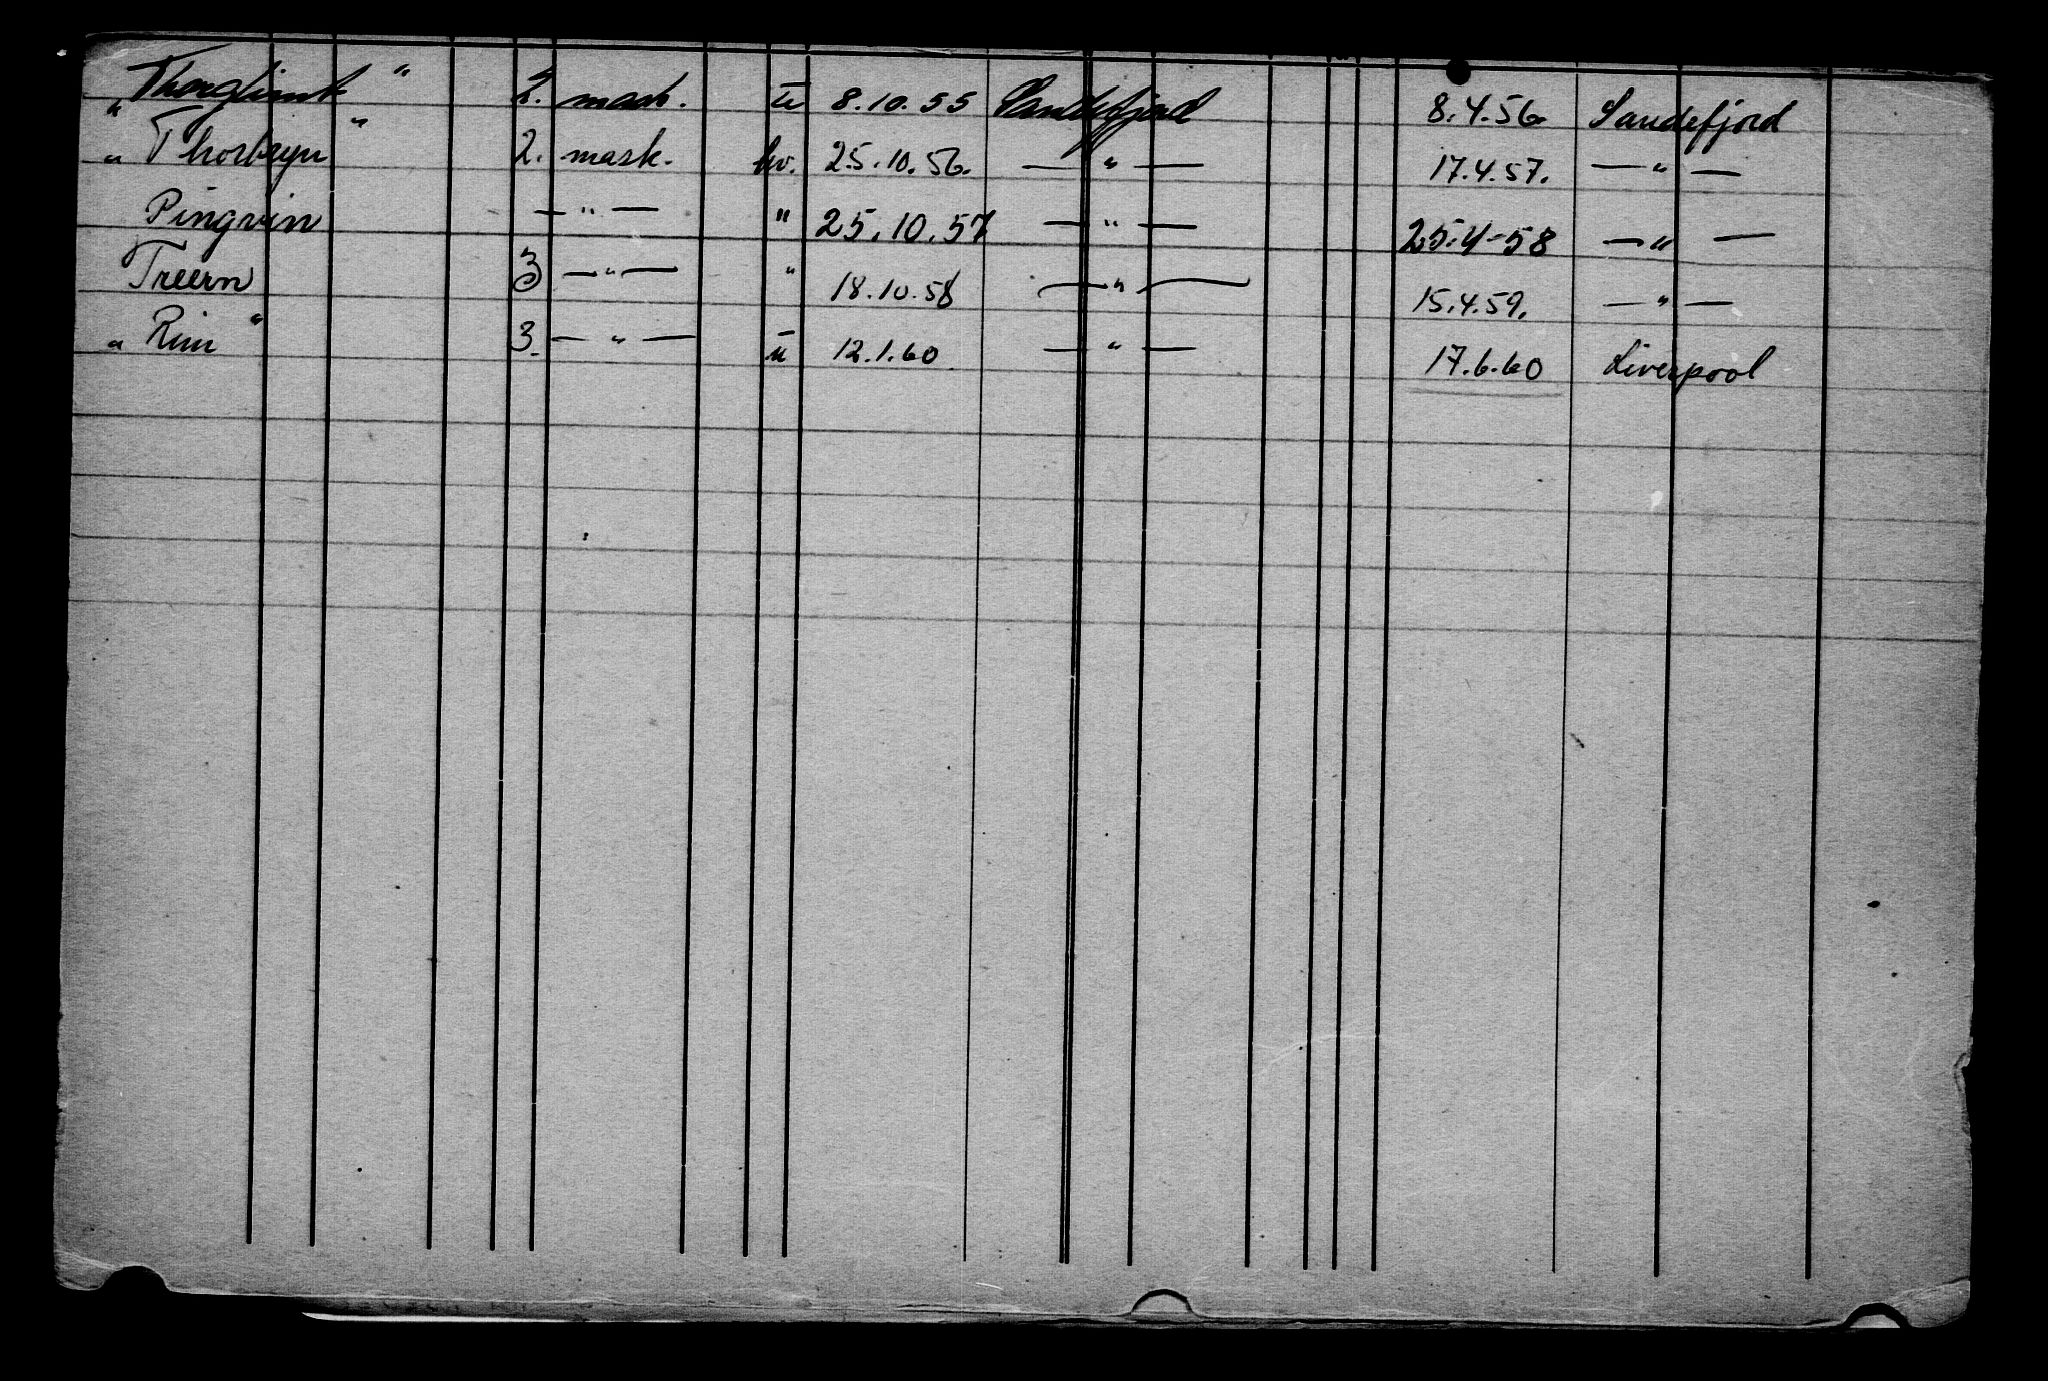 "Thorglimt" 2. mask. ū 8.10.55 Sandefjord 8.4.56 Sandefjord
"Thorbryn" 2. mask. hv. 25.10.56. — " — 17.4.57. — " —
Pingvin — " — " 25.10.57 — " — 25-4-58 — " —
Treern 3 — " — " 18.10.58 — " — 15.4.59. — " —
"Rim" 3. — " — ū 12.1.60 — " — 17.6.60 Liverpool